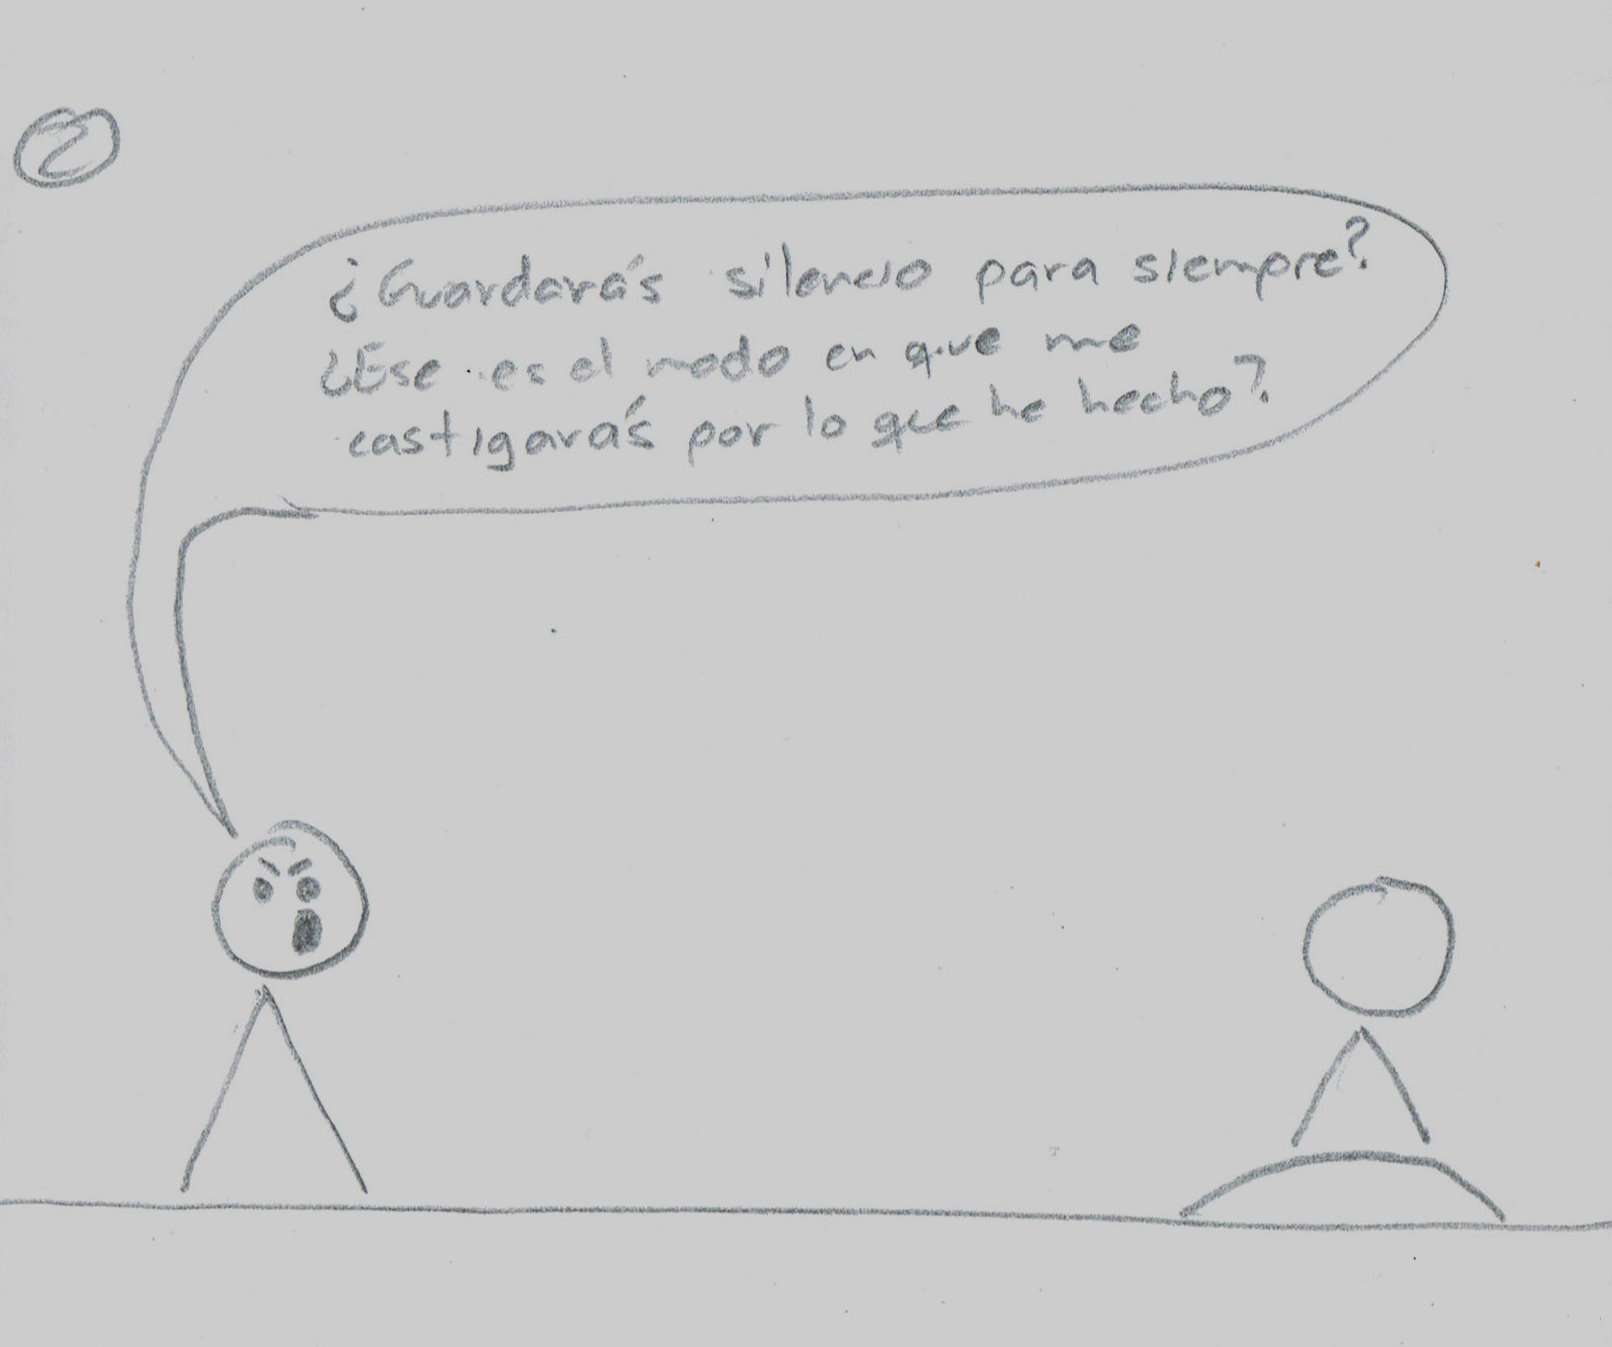 2
¿Guardarás silencio para siempre?
¿Ese es el modo en que me
castigarás por lo que he hecho?